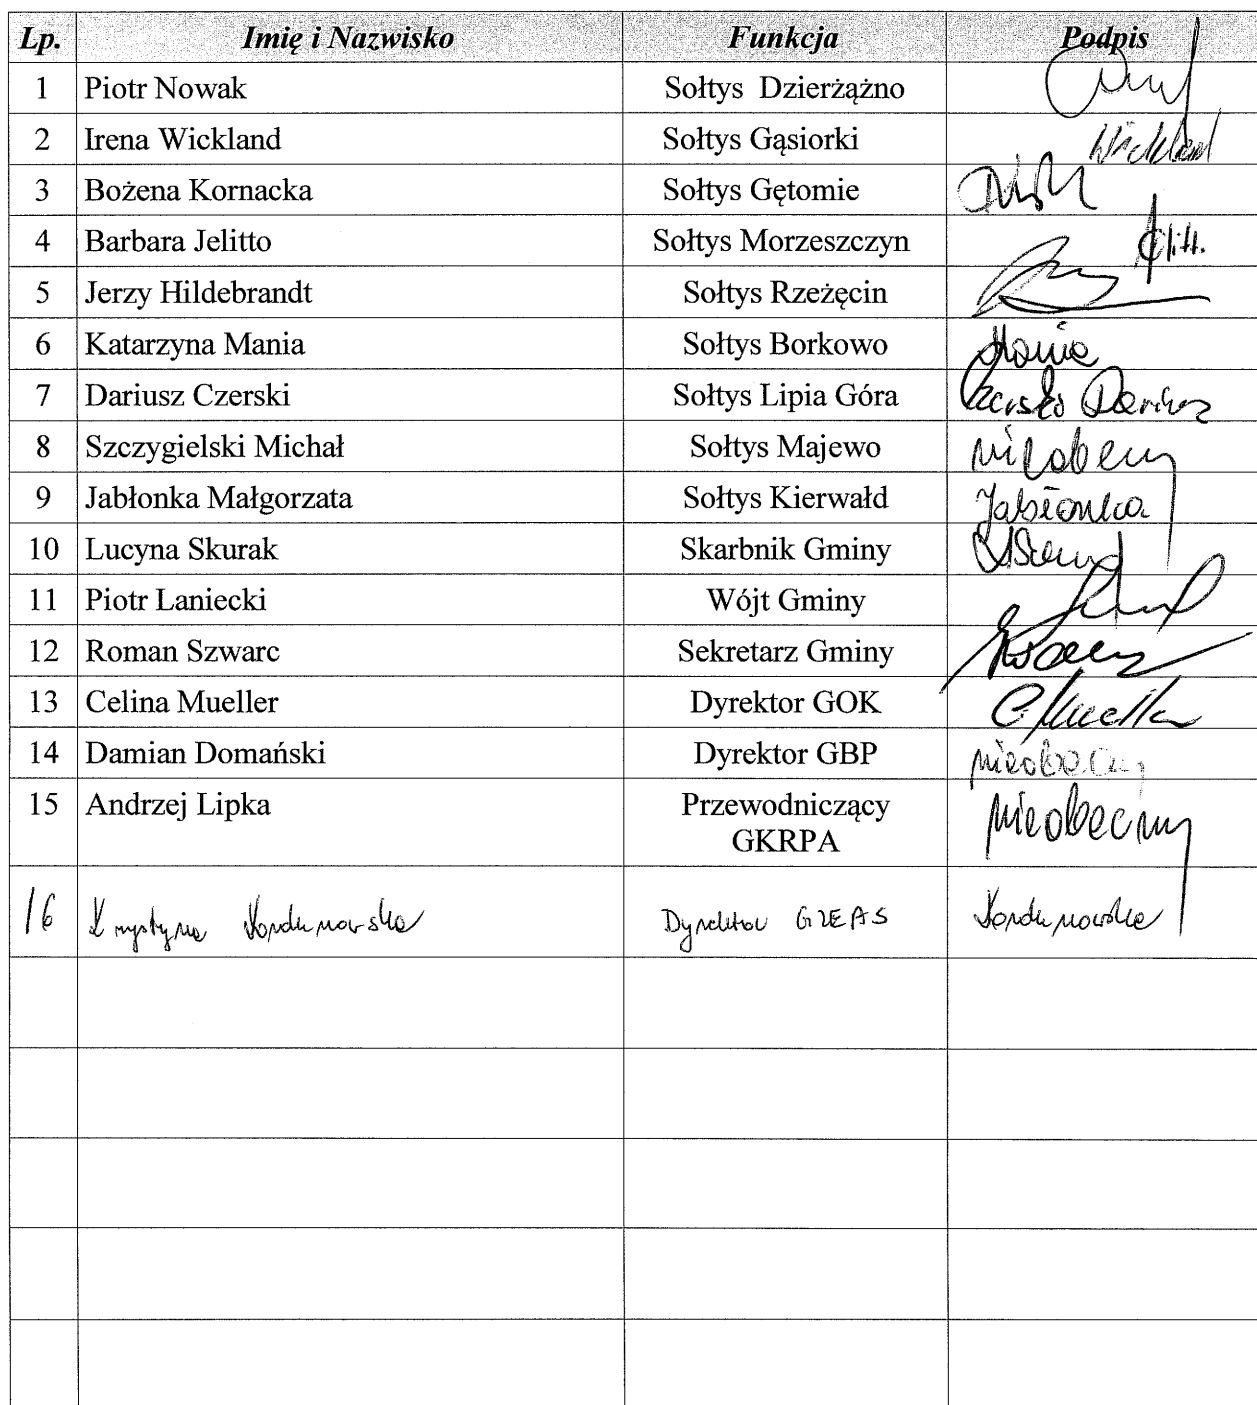 Lp. Imię i Nazwisko Funkcja Podpis
1 Piotr Nowak Sołtys Dzierżążno
2 Irena Wickland Sołtys Gąsiorki Wickland
3 Bożena Kornacka Sołtys Gętomie
4 Barbara Jelitto Sołtys Morzeszczyn
5 Jerzy Hildebrandt Sołtys Rzeżęcin
6 Katarzyna Mania Sołtys Borkowo Mania
7 Dariusz Czerski Sołtys Lipia Góra Czerski Dariusz
8 Szczygielski Michał Sołtys Majewo nieobecny
9 Jabłonka Małgorzata Sołtys Kierwałd Jabłonka
10 Lucyna Skurak Skarbnik Gminy
11 Piotr Laniecki Wójt Gminy
12 Roman Szwarc Sekretarz Gminy
13 Celina Mueller Dyrektor GOK C. Mueller
14 Damian Domański Dyrektor GBP nieobecny
15 Andrzej Lipka Przewodniczący nieobecny
GKRPA
16 Krystyna Dyrektor GZEAS